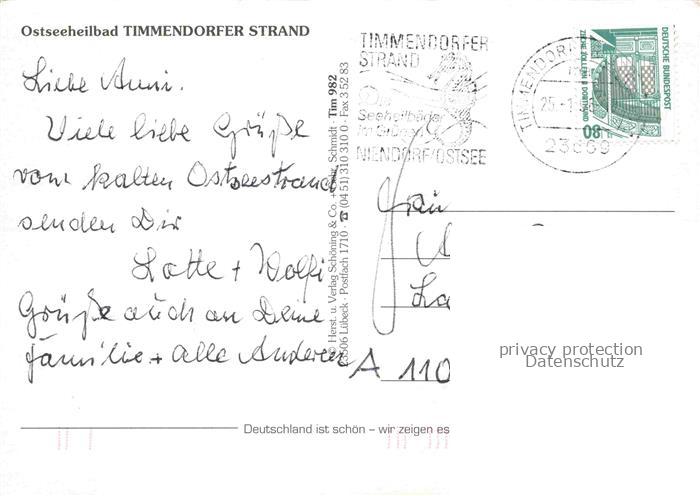 Ostseeheilbad TIMMENDORFER STRAND
Liebe Anni.
Viele liebe Grüße
vom kalten Ostseestrand
senden Dir
Lotte + Wolfi
Grüße auch an Deine
Familie + alle Anderen
© Herst. u. Verlag Schöning & Co. + Schmidt Tim 982
23506 Lübeck · Postfach 1710 · ☎ (04 51) 310 310 0 · Fax 3 52 83
TIMMENDORFER
STRAND
Seeheilbäder
im Grünen
NIENDORF/OSTSEE
TIMMENDORF
25.-1
23669
DEUTSCHE BUNDESPOST
ZECHE ZOLLERN II DORTMUND
80
Frau
La
A 110
privacy protection
Datenschutz
Deutschland ist schön – wir zeigen es